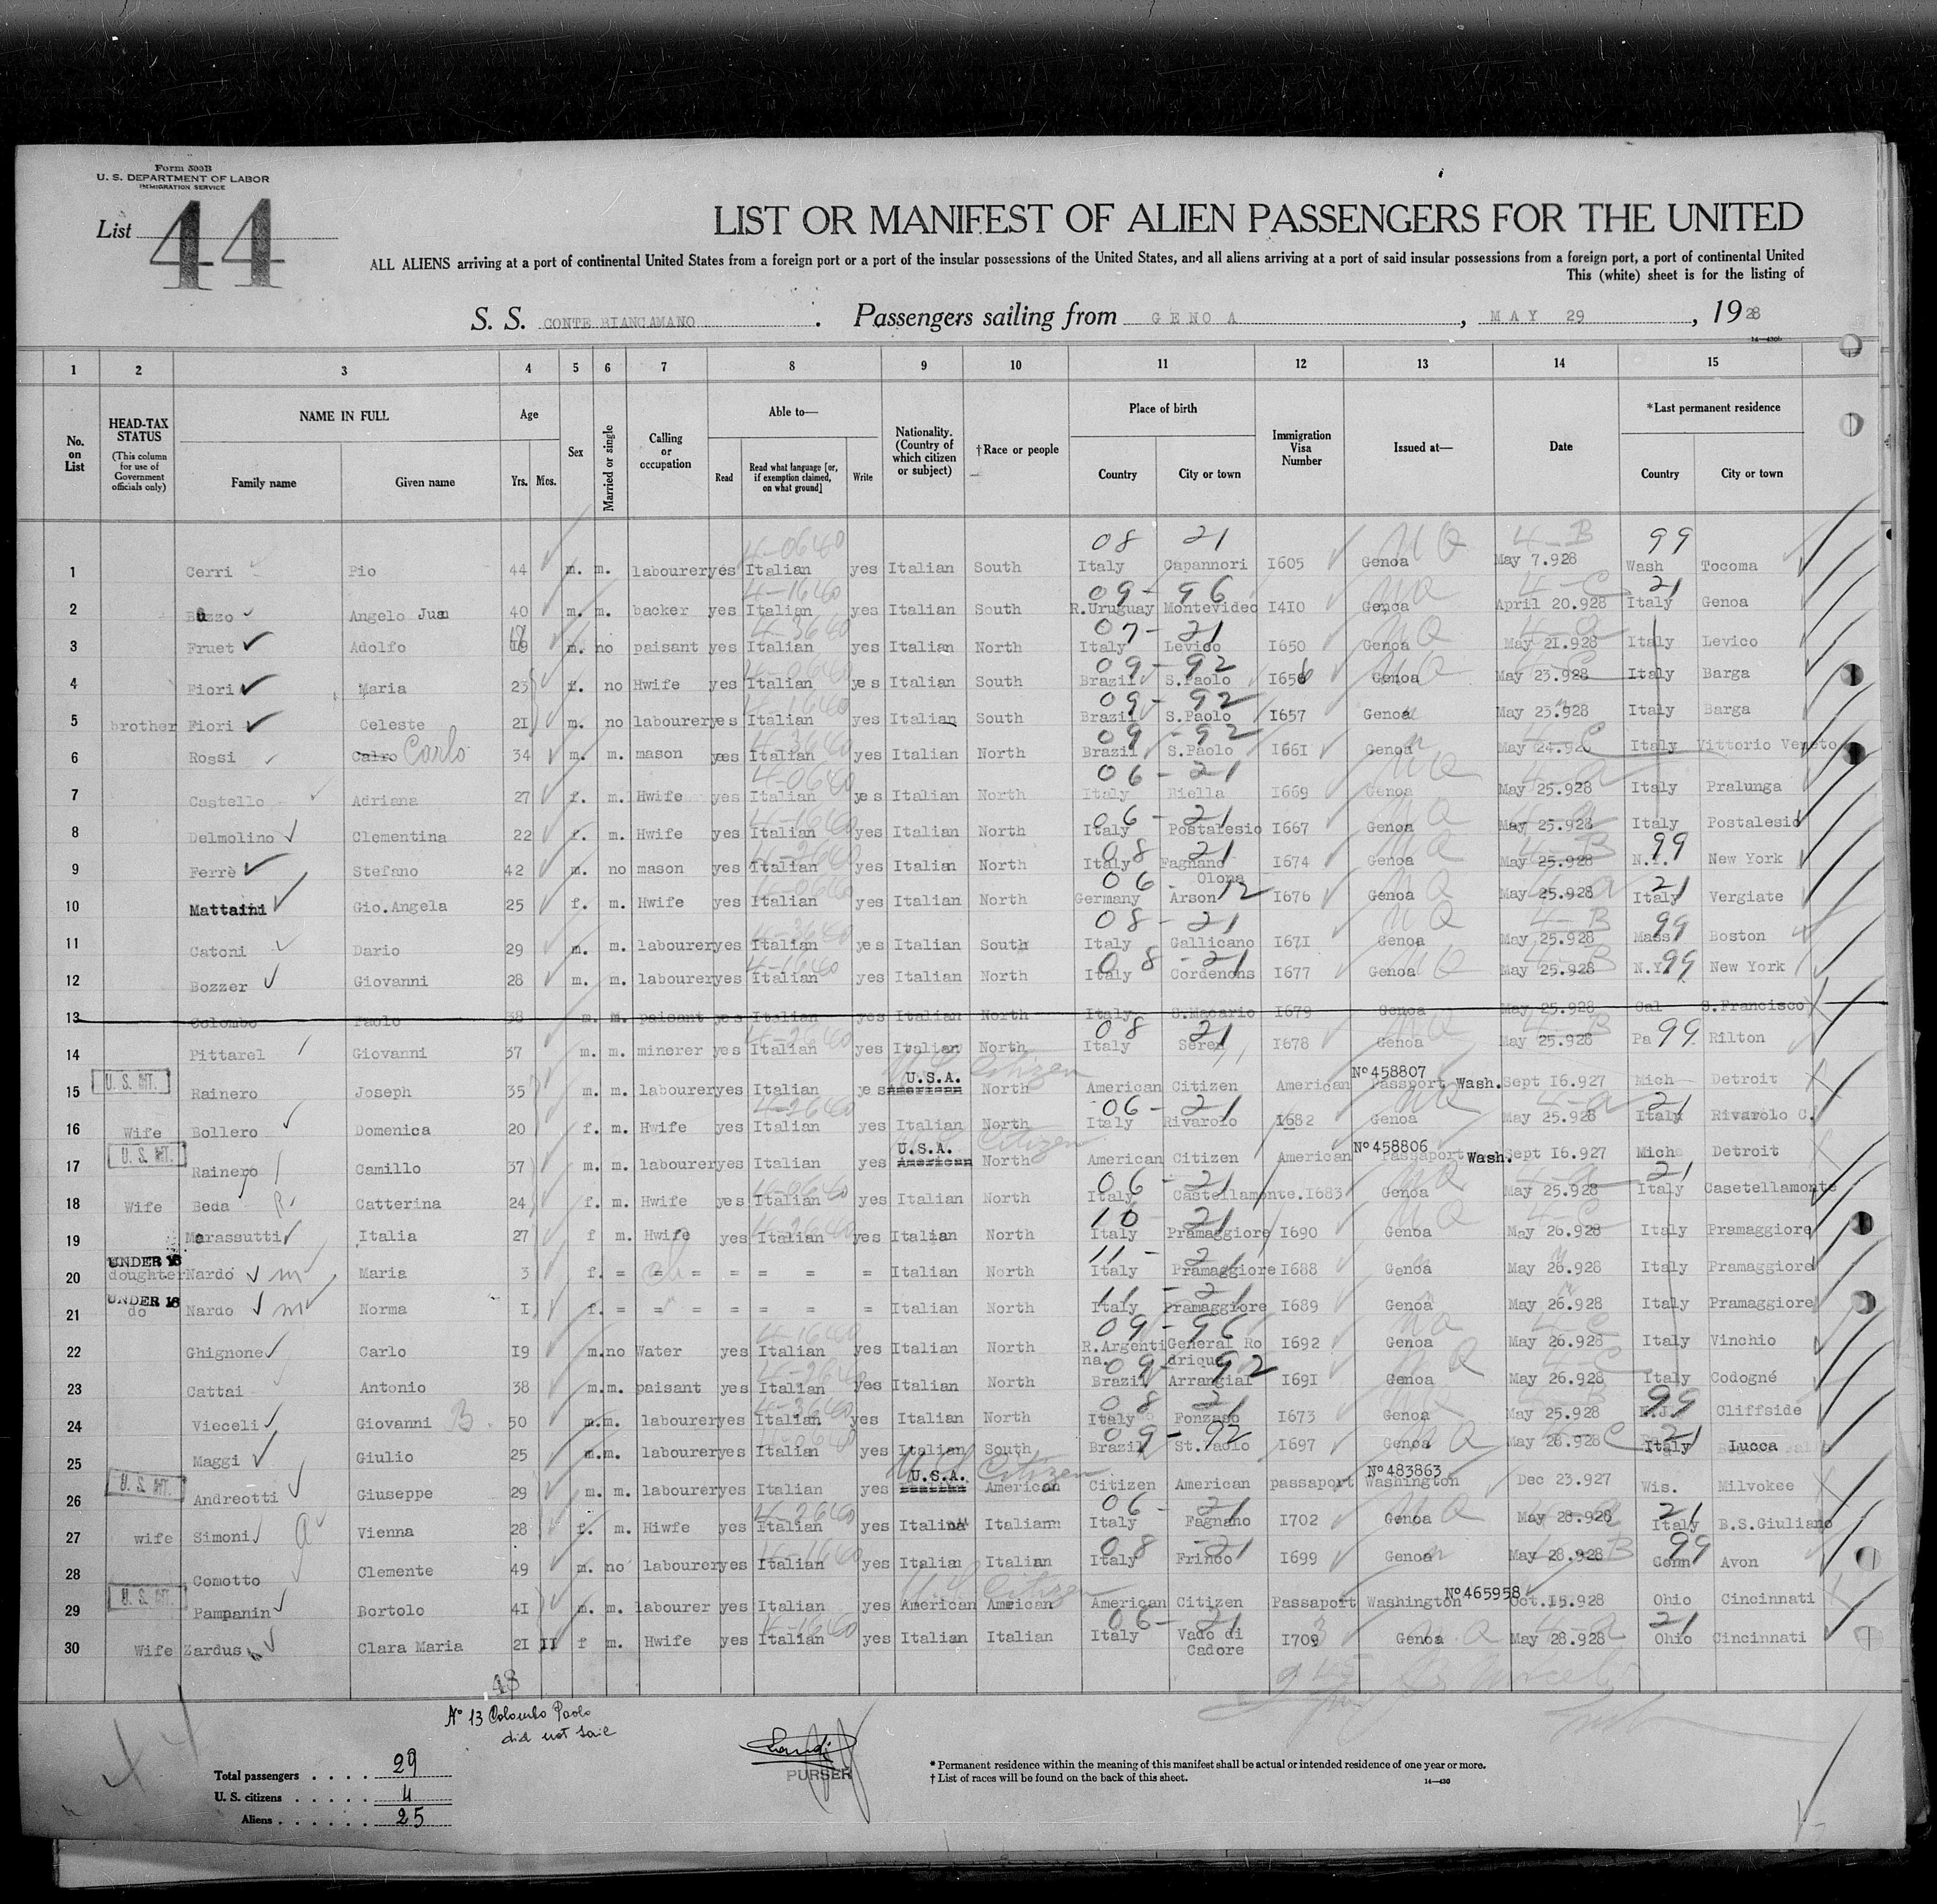 Form 500B
U. S. DEPARTMENT OF LABOR
IMMIGRATION SERVICE
List 44
LIST OR MANIFEST OF ALIEN PASSENGERS FOR THE UNITED
ALL ALIENS arriving at a port of continental United States from a foreign port or a port of the insular possessions of the United States, and all aliens arriving at a port of said insular possessions from a foreign port, a port of continental United
This (white) sheet is for the listing of
S. S. CONTE BIANCAMANO. Passengers sailing from GENOA, MAY 29, 1928
14—430b
1 2 3 4 5 6 7 8 9 10 11 12 13 14 15
No. on List HEAD-TAX STATUS (This column for use of Government officials only) NAME IN FULL Family name Given name Age Yrs. Mos. Sex Married or single Calling or occupation Able to— Read Read what language [or, if exemption claimed, on what ground] Write Nationality. (Country of which citizen or subject) †Race or people Place of birth Country City or town Immigration Visa Number Issued at— Date *Last permanent residence Country City or town
1 Cerri Pio 44 m. m. labourer yes Italian yes Italian South Italy Capannori I605 Genoa May 7.928 Wash Tocoma
2 Buzzo Angelo Jua 40 m. m. backer yes Italian yes Italian South R.Uruguay Montevideo I4I0 Genoa April 20.928 Italy Genoa
3 Fruet Adolfo m. no paisant yes Italian yes Italian North Italy Levico I650 Genoa May 21.928 Italy Levico
4 Fiori Maria 25 f. no Hwife yes Italian yes Italian South Brazil S.Paolo I656 Genoa May 23.928 Italy Barga
5 brother Fiori Celeste 2I m. no labourer yes Italian yes Italian South Brazil S.Paolo I657 Genoa May 23.928 Italy Barga
6 Rossi Calro Carlo 34 m. m. mason yes Italian yes Italian North Brazil S.Paolo I66I Genoa May 24.928 Italy Vittorio Veneto
7 Castello Adriana 27 f. m. Hwife yes Italian yes Italian North Italy Biella I669 Genoa May 25.928 Italy Pralunga
8 Delmolino Clementina 22 f. m. Hwife yes Italian yes Italian North Italy Postalesio I667 Genoa May 25.928 Italy Postalesio
9 Ferrè Stefano 42 m. no mason yes Italian yes Italian North Italy Fagnano Olona I674 Genoa May 25.928 N.Y. New York
10 Mattaini Gio.Angela 25 f. m. Hwife yes Italian yes Italian North Germany Arson I676 Genoa May 25.928 Italy Vergiate
11 Catoni Dario 29 m. m. labourer yes Italian yes Italian South Italy Gallicano I67I Genoa May 25.928 Mass Boston
12 Bozzer Giovanni 28 m. m. labourer yes Italian yes Italian North Italy Cordenons I677 Genoa May 25.928 N.Y. New York
13 Colombo Paolo 38 m. m. paisant yes Italian yes Italian North Italy S.Macario I679 Genoa May 25.928 Cal S.Francisco
14 Pittarel Giovanni 37 m. m. minerer yes Italian yes Italian North Italy Seren I678 Genoa May 25.928 Pa Rilton
15 U. S. Rainero Joseph 35 m. m. labourer yes Italian yes American U.S.A. North American Citizen American Passport Nº 458807 Wash. Sept I6.927 Mich Detroit
16 Wife Bollero Domenica 20 f. m. Hwife yes Italian yes Italian North Italy Rivarolo I682 Genoa May 25.928 Italy Rivarolo C.
17 U. S. Rainero Camillo 37 m. m. labourer yes Italian yes American U.S.A. North American Citizen American Passaport Nº 458806 Wash. Sept I6.927 Mich Detroit
18 Wife Beda R. Catterina 24 f. m. Hwife yes Italian yes Italian North Italy Castellamonte. I683 Genoa May 25.928 Italy Casetellamonte
19 Marassutti Italia 27 f m. Hwife yes Italian yes Italian North Italy Pramaggiore I690 Genoa May 26.928 Italy Pramaggiore
20 UNDER 16 doughter Nardo Maria 3 f. = = = = = = = Italian North Italy Pramaggiore I688 Genoa May 26.928 Italy Pramaggiore
21 UNDER 16 do Nardo Norma I f. = = = = = = Italian North Italy Pramaggiore I689 Genoa May 26.928 Italy Pramaggiore
22 Ghignone Carlo I9 m. no Water yes Italian yes Italian North R.Argentina. General Rodrique I692 Genoa May 26.928 Italy Vinchio
23 Cattai Antonio 38 m. m. paisant yes Italian yes Italian North Brazil Arrangial I69I Genoa May 26.928 Italy Codogné
24 Vieceli Giovanni B. 50 m. m. labourer yes Italian yes Italian North Italy Fonzaso I673 Genoa May 25.928 N.J. Cliffside
25 Maggi Giulio 25 m. m. labourer yes Italian yes Italian South Brazil St.Paolo I697 Genoa May 28.928 Italy Lucca
26 U. S. Andreotti Giuseppe 29 m. m. labourer yes Italian yes U.S.A. American Citizen American passaport Nº 483863 Washington Dec 23.927 Wis. Milvokee
27 wife Simoni Vienna 28 f. m. Hiwfe yes Italian yes Italina Italiann Italy Fagnano I702 Genoa May 28.928 Italy B.S.Giuliano
28 Comotto Clemente 49 m. no labourer yes Italian yes Italian Italian Italy Frinco I699 Genoa May 28.928 Conn Avon
29 U. S. Pampanin Bortolo 4I m. m. labourer yes Italian yes American American American Citizen Passaport Washington Nº 465958 Oct.I5.928 Ohio Cincinnati
30 Wife Zardus Clara Maria 2I II f m. Hwife yes Italian yes Italian Italian Italy Vado di Cadore I703 Genoa May 28.928 Ohio Cincinnati
48
Nº 13 Colombo Paolo
did not sail
Total passengers 29
U. S. citizens 4
Aliens 25
PURSER
* Permanent residence within the meaning of this manifest shall be actual or intended residence of one year or more.
† List of races will be found on the back of this sheet.
14—430